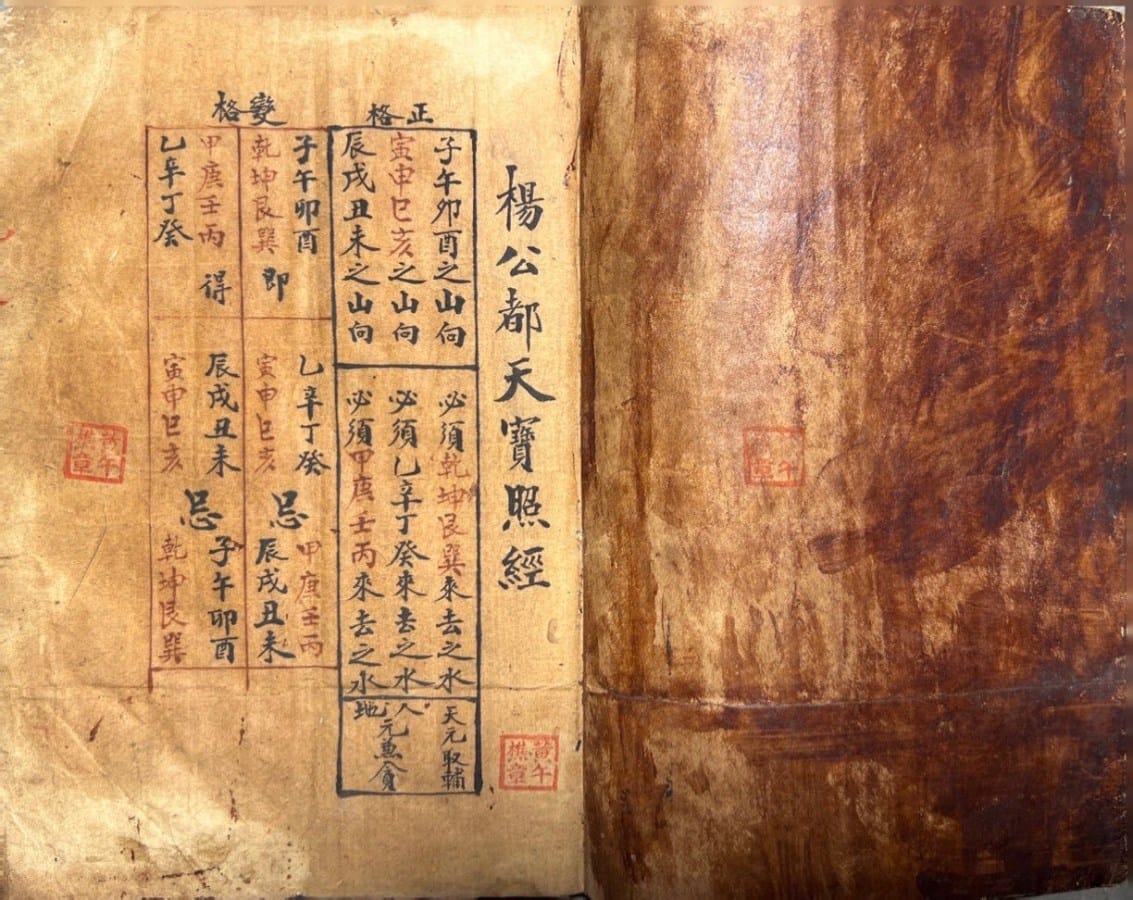 楊公都天寶照經
正格
子午卯酉之山向
寅申巳亥之山向
辰戌丑未之山向
必須乾坤艮巽來去之水
必須乙辛丁癸來去之水
必須甲庚壬丙來去之水
天元取輔
人地元兼貪
變格
子午卯酉
乾坤艮巽
即
乙辛丁癸
寅申巳亥
忌
甲庚壬丙
辰戌丑未
甲庚壬丙
乙辛丁癸
得
辰戌丑未
寅申巳亥
忌
子午卯酉
乾坤艮巽
黃午樵章